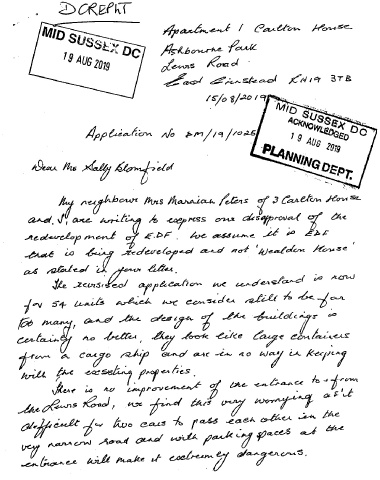 DCREPHT
MID SUSSEX DC
19 AUG 2019
Apartment 1 Carlton House
Ashbourne Park
Lewes Road
East Grinstead RH19 3TB
15/08/2019
MID SUSSEX DC
ACKNOWLEDGED
19 AUG 2019
PLANNING DEPT.
Application No DM/19/1025
Dear Ms Sally Blomfield
My neighbour Mrs Marian Peters of 3 Carlton House
and I are writing to express our disapproval of the
redevelopment of EDF. We assume it is EDF
that is being redeveloped and not 'Wealden House'
as stated in your letter.
The revised application we understand is now
for 54 units which we consider still to be far
too many, and the design of the buildings is
certainly no better, they look like large containers
from a cargo ship and are in no way in keeping
with the existing properties.
There is no improvement of the entrance to & from
the Lewes Road, we find this very worrying as it
difficult for two cars to pass each other in the
very narrow road and with parking spaces at the
entrance will make it extremely dangerous.